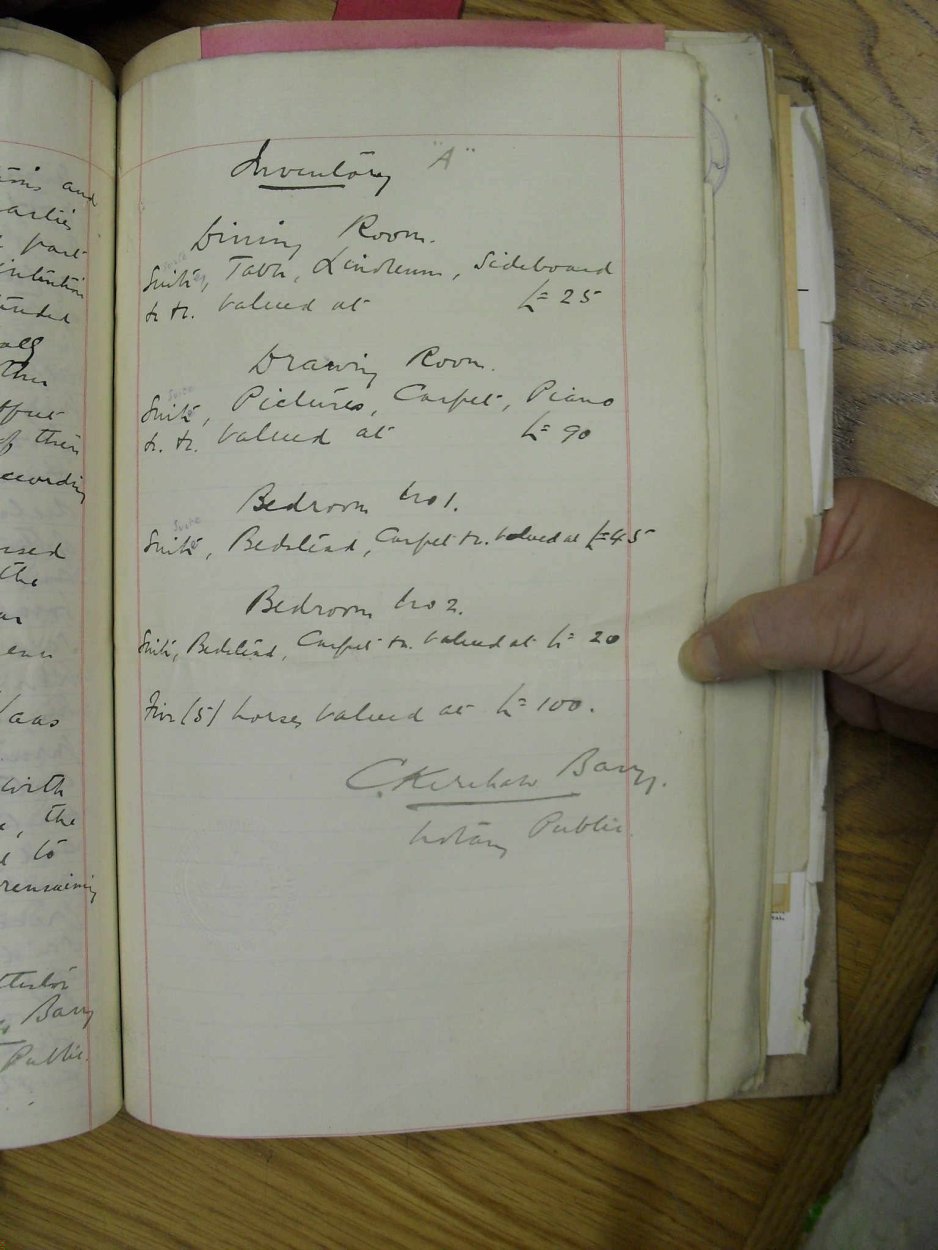 Inventory "A"
Dining Room.
Suite, Table, Linoleum, Sideboard
&c &c. Valued at £= 25
Drawing Room.
Suite, Pictures, Carpet, Piano
&c. &c. Valued at £= 90
Bedroom No 1.
Suite, Bedstead, Carpet &c. Valued at £=45
Bedroom No 2.
Suite, Bedstead, Carpet &c. Valued at £= 20
Five (5) horses Valued at £= 100.
C. Kershaw Barry.
Notary Public.
and
part
intention
of their
according
the
with
the
to
remaining
Barry
Public.